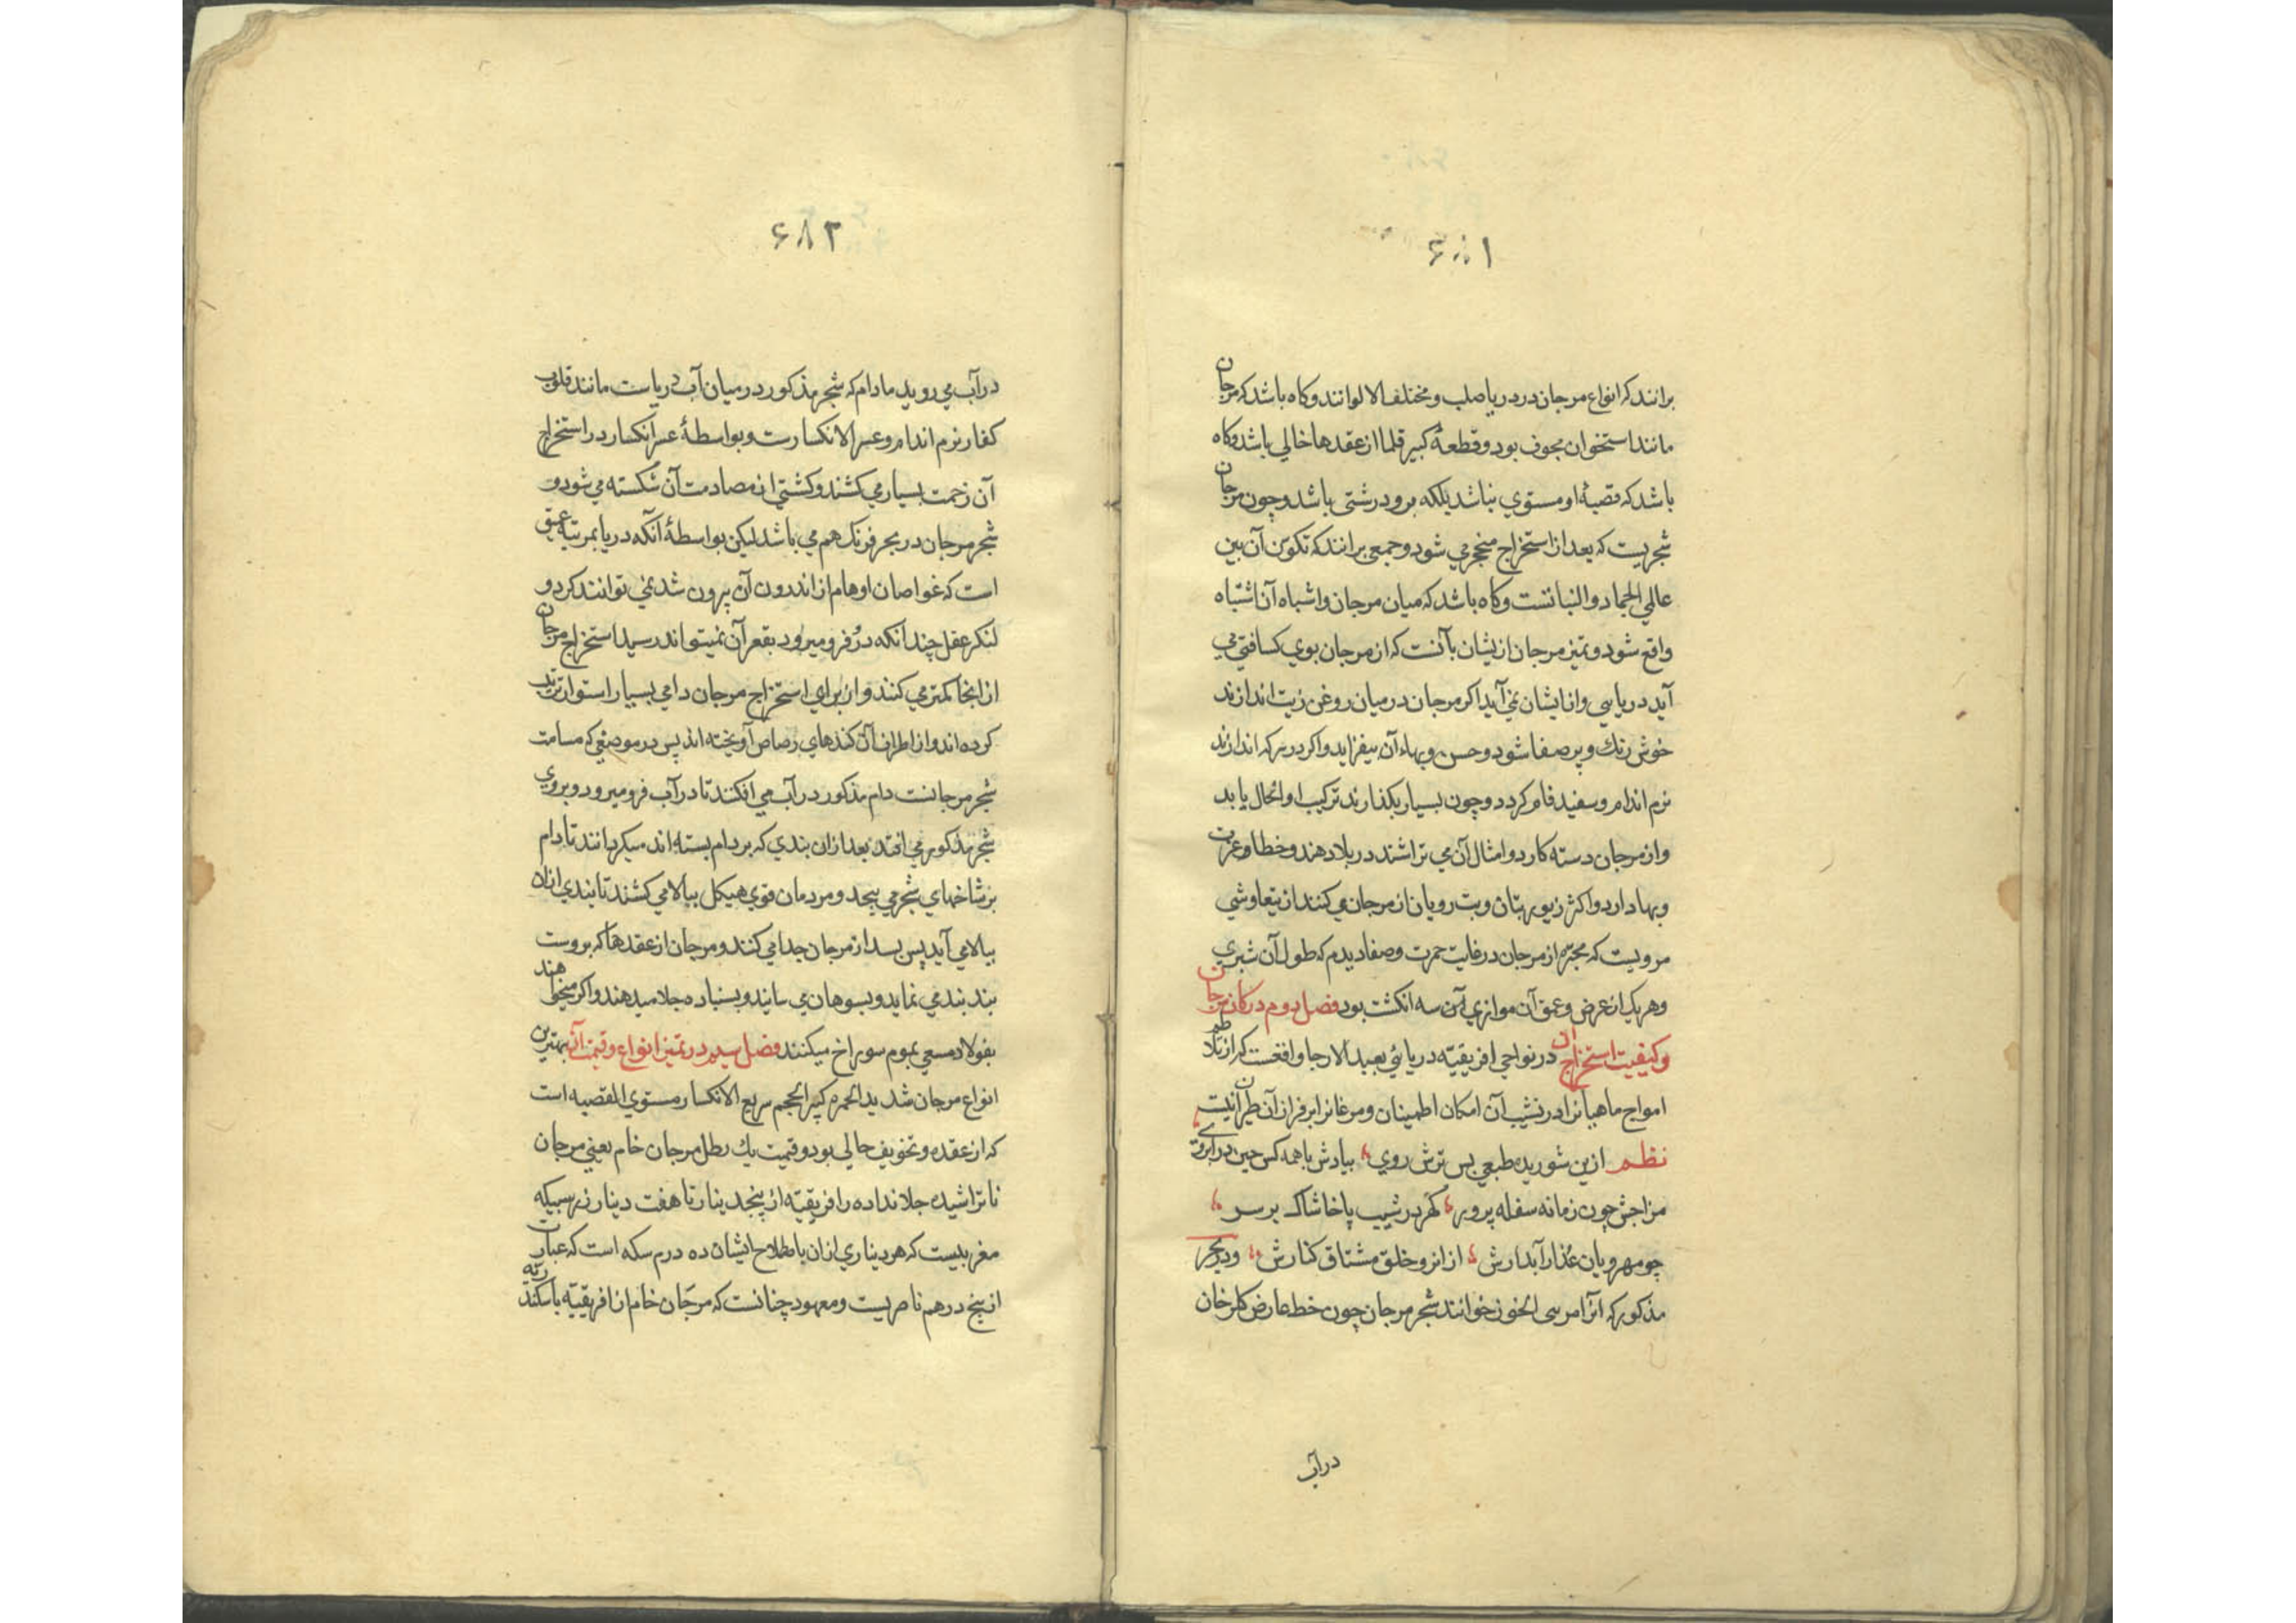 ۶۸۱
برانند که انواع مرجان در دریا صلب و مختلف الالوانند و کاه باشد که مرجان
مانند استخوان مجوف بود و قطعهٔ کبیر قلما از عقدها خالی باشد و کاه
باشد که قصبهٔ او مستوی نباشد بلکه برو درشتی باشد و چون مرجان
شجریست که بعد از استخراج متحجر می شود و جمعی برانند که تکون آن بین
عالمی الجماد و النباتست و کاه باشد که میان مرجان و اشباه آن اشتباه
واقع شود و تمیز مرجان ازیشان بآنست که از مرجان بوی کسافتی می
آید دریایی و از ایشان نمی آید اکر مرجان در میان روغن زیت اندازند
خوش رنك و پر صفا شود و حسن و بهاء آن بیفزاید و اکر در سرکه اندازند
نرم اندام و سفید فام کردد و چون بسیار بکذارند ترکیب او انحلال یابد
و از مرجان دسته کارد و امثال آن می تراشند در بلاد هند و خطا و عزت
و بها دارد و اکثر زیور بتان و بت رویان از مرجان می کنند از یتعاوشی
مرویست که مجبره از مرجان در غایت حمرت و صفا دیدم که طول آن شبری
و هر یک از عرض و عمق آن موازی آن سه انکشت بود فصل دوم در کان مرجان
و کیفیت استخراج آن در نواحی افریقیّه دریائی بعید الارجا واقعست که از تلاطم
امواج ماهیانرا در نشیب آن امکان اطمینان و مرغانرا بر فراز آن طیران نیست
نظم ازین شوریده طبعی بس ترش روی ، بیادش با همه کس چین در ابروی ،
مزاجش چون زمانه سفله پرور ، کهر در شیب پا خاشاک بر سر ،
چو مهرویان عذار آبدارش ، از انرو خلق مشتاق کنارش ، و در بحر
مذکور که آنرا مرسی الخرز خوانند شجر مرجان چون خط عارض کلرخان
در آب
۶۸۲
در آب می روید مادام که شجر مذکور در میان آب دریاست مانند قلوب
کفار نرم اندام و عسر الانکسارست و بواسطهٔ عسر انکسار در استخراج
آن زحمت بسیار می کشند و کشتی از مصادمت آن شکسته می شود و
شجر مرجان در بحر فرنک هم می باشد لیکن بواسطهٔ آنکه دریا بمرتبه عمیق
است که غواصان اوهام از اندرون آن بیرون شد نمی توانند کرد و
لنکر عقل چندانکه درو فرو میرود بقعر آن نمیتواند رسید استخراج مرجان
از انجا کمتر می کنند و از برای استخراج مرجان دامی بسیار استوار ترتیب
کرده اند و از اطراف آن کندهای رصاص آویخته اند پس در موضعی که مسامت
شجر مرجانست دام مذکور در آب می افکنند تا در آب فرو میرود و بروی
شجر مذکور می افتد بعد از ان بندی که بر دام بسته اند میکردانند تا دام
بر شاخهای شجر می پیچد و مردمان قوی هیکل ببالا می کشند تا بندی از ان
ببالا می آید پس بسد از مرجان جدا می کنند و مرجان از عقدها که بروست
بند بند می نماید و بسوهان می سایند و بسنباده جلا میدهند و اکر میخواهند
بفولاد مسقی بموم سوراخ میکنند فصل سیم در تمیز انواع و قیمت آن بهترین
انواع مرجان شدید الحمره کبیر الحجم سریع الانکسار مستوی القصبه است
که از عقده و تجویف خالی بود و قیمت یك رطل مرجان خام یعنی مرجان
نا تراشیده جلا نداده را افریقیّه از پنج دینار تا هفت دینار زر سبیکه
مغربیست که هر دیناری از ان باطلاح ایشان ده درم سکه است که عبارت
از پنج درهم ناصریست و معهود چنانست که مرجان خام از افریقیّه باسکندریّه